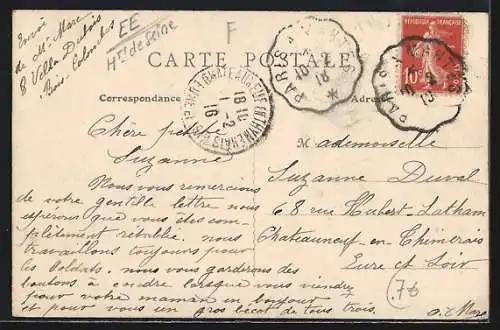 Envoi
de Mr Marc
8 Villa Dubois
Bois-Colombes
EE
Hts de Seine
F
CARTE POSTALE
Correspondance
PARIS A
REPUBLIQUE FRANÇAISE
10
CHATEAUNEUF EN THYMERAIS
18 10
1 -2
16
Chère petite
Suzanne
Nous vous remercions
de votre gentille lettre nous
esperons que vous des com-
plètement rétablie, nous
travaillons toujours pour
les soldats, nous vous garderons des
boutons à coudre lorsque vous viendrez
pour votre maman un bonjour
et pour vous un gros bécot de tous trois.
Mademoiselle
Suzanne Duval
68 rue Hubert-Latham
Chateauneuf-en-Thimerais
Eure et Loir
76